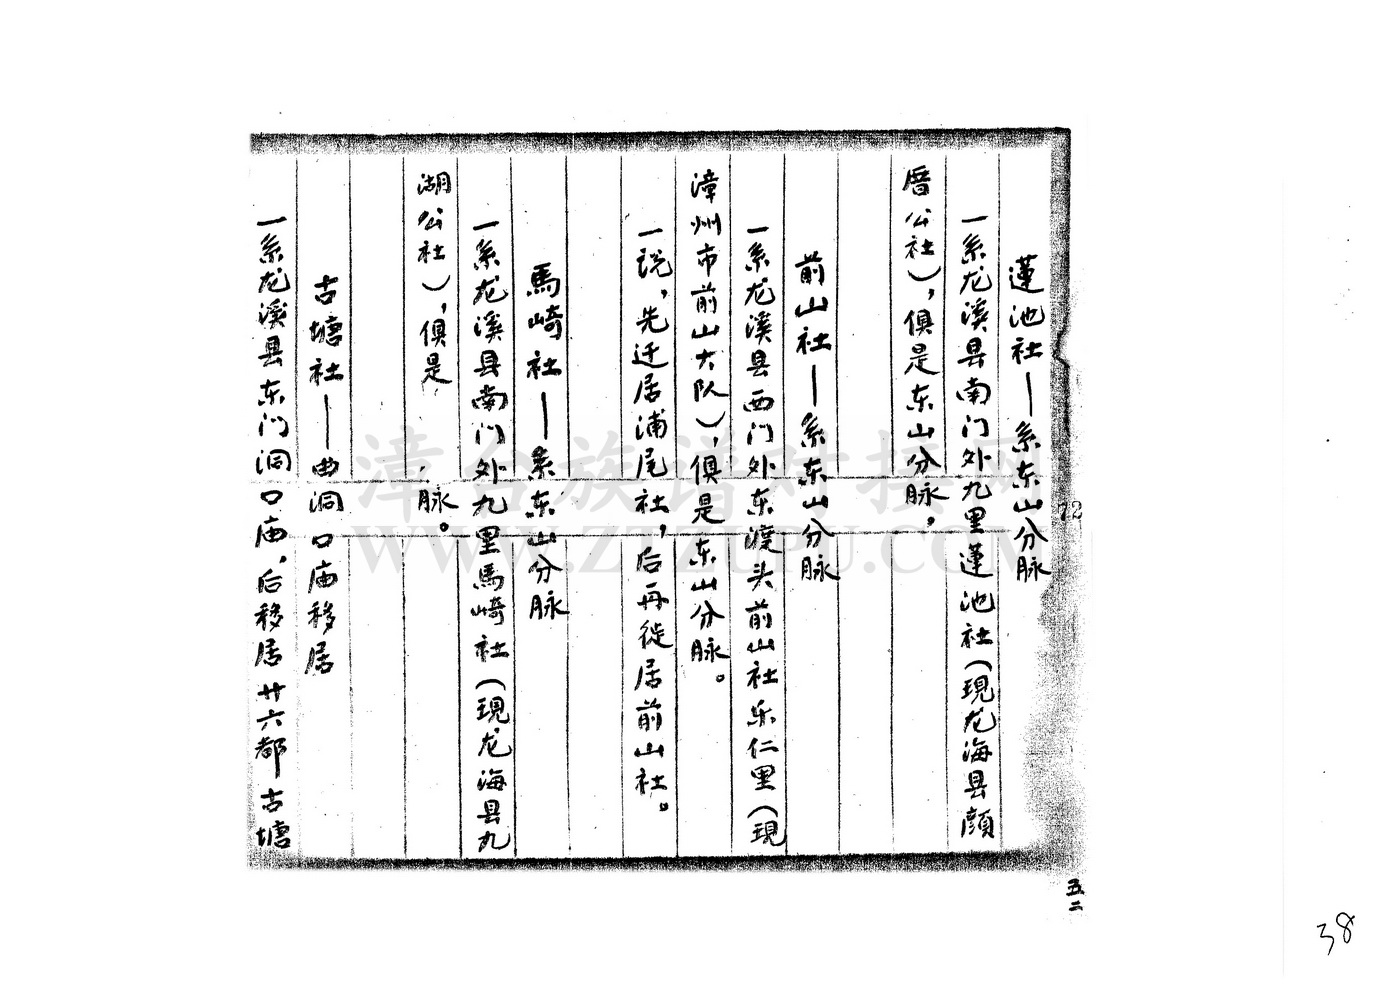 蓮池社—系东山分脉
一系龙溪县南门外九里蓮池社(現龙海县顏
厝公社)，俱是东山分脉，
前山社—系东山分脉
一系龙溪县西门外东渡头前山社乐仁里(現
漳州市前山大队)，俱是东山分脉。
一説，先迁居浦尾社，后再徙居前山社。
馬崎社—系东山分脉
一系龙溪县南门外九里馬崎社(現龙海县九
湖公社)，俱是 脉。
古塘社—由洞口庙移居
一系龙溪县东门洞口庙，后移居廿六都古塘
12
五二
38
漳台族谱对接网
WWW.ZTZUPU.COM